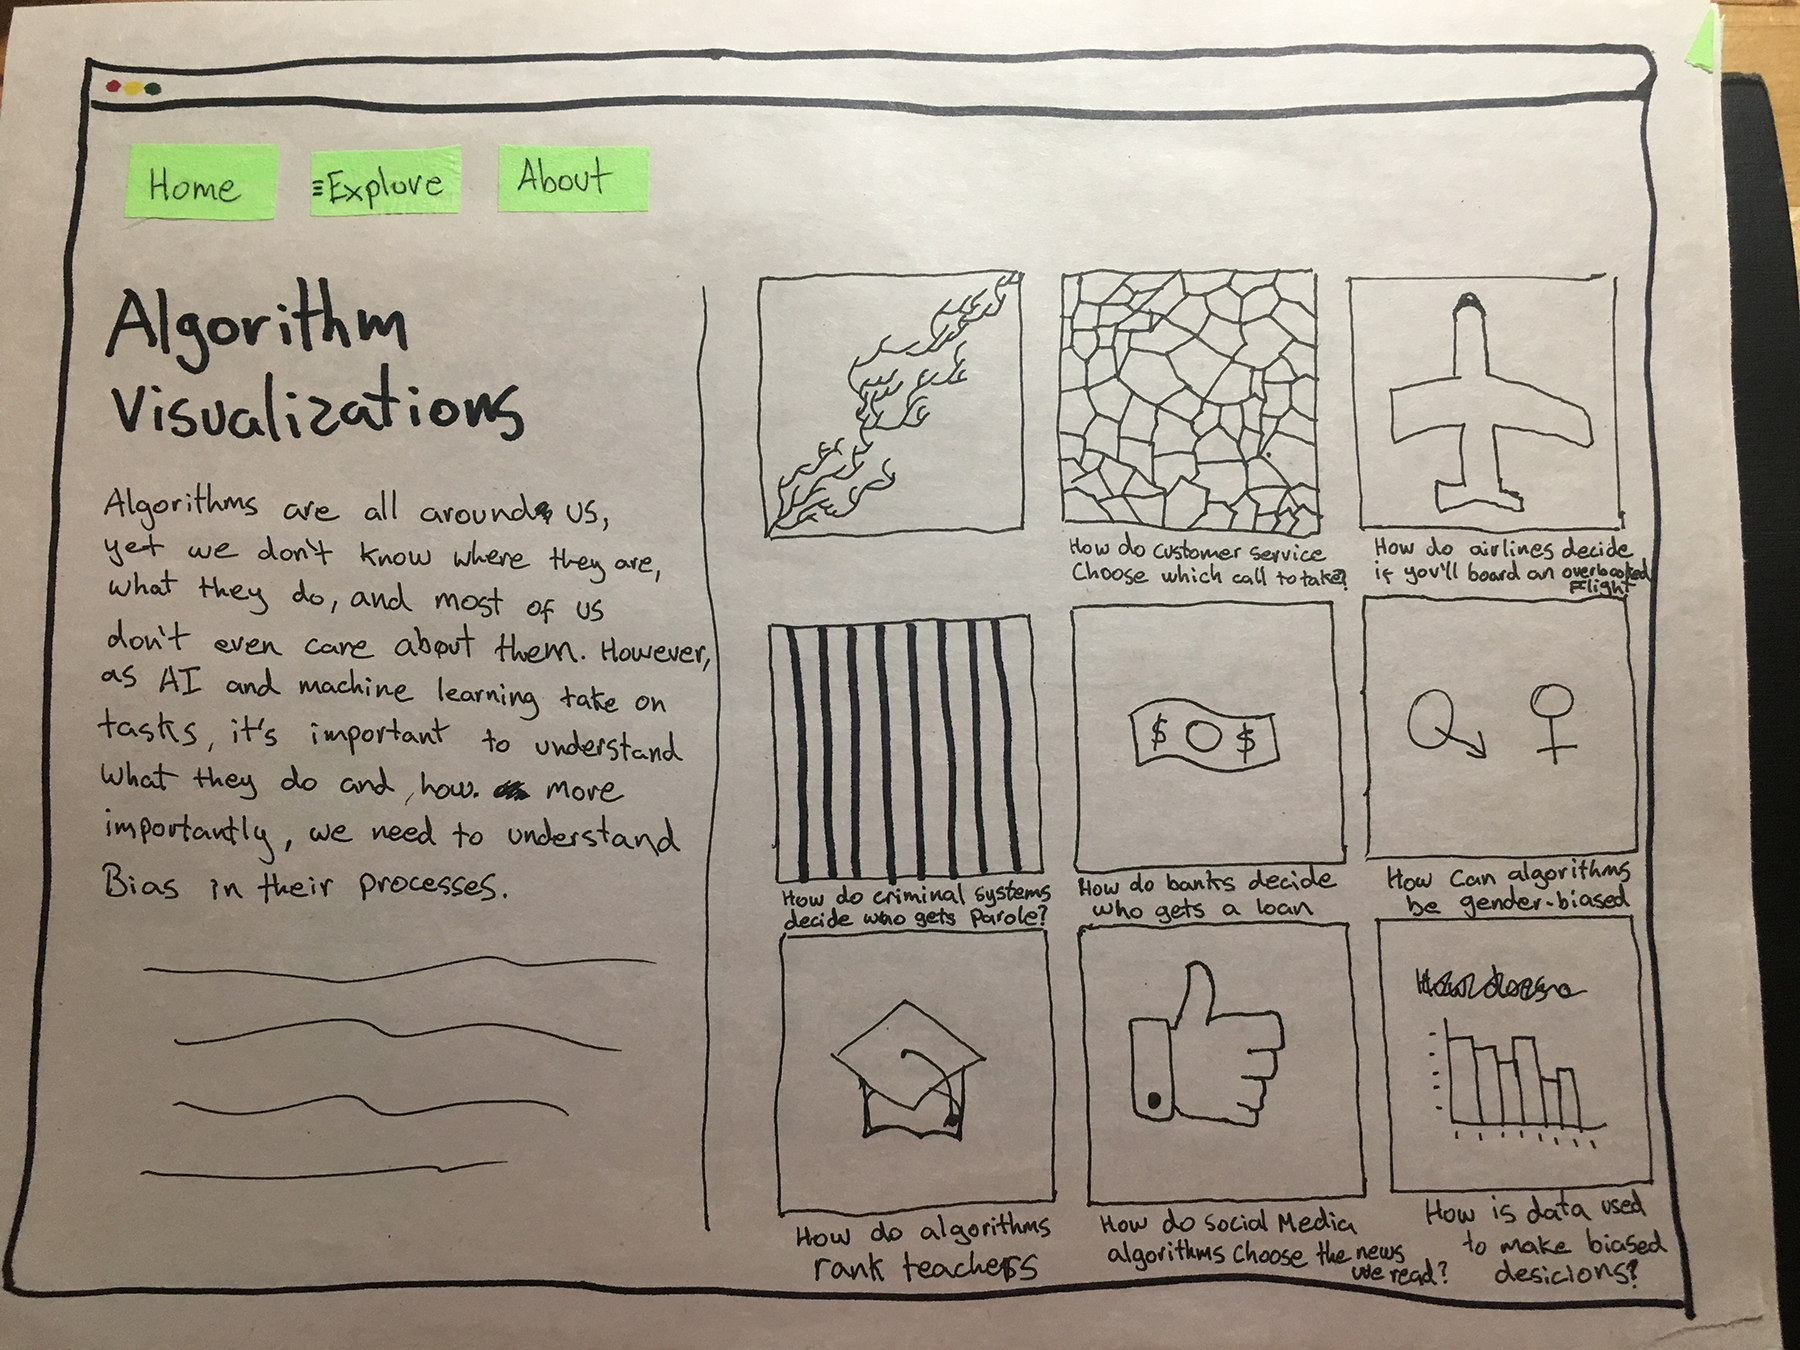 Home
Explore
About
Algorithm
Visualizations
Algorithms are all around us,
yet we don't know where they are,
what they do, and most of us
don't even care about them. However,
as AI and machine learning take on
tasks, it's important to understand
what they do and, how. more
importantly, we need to understand
Bias in their processes.
How do customer service
Choose which call to take?
How do airlines decide
if you'll board an overbooked
Flight
How do criminal systems
decide who gets Parole?
$ $
How do banks decide
who gets a loan
How can algorithms
be gender-biased
How do algorithms
rank teachers
How do social Media
algorithms choose the news
we read?
How is data used
to make biased
desicions?